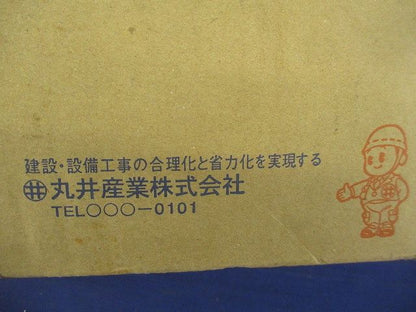 建設・設備工事の合理化と省力化を実現する
井 丸井産業株式会社
TEL○○○−0101